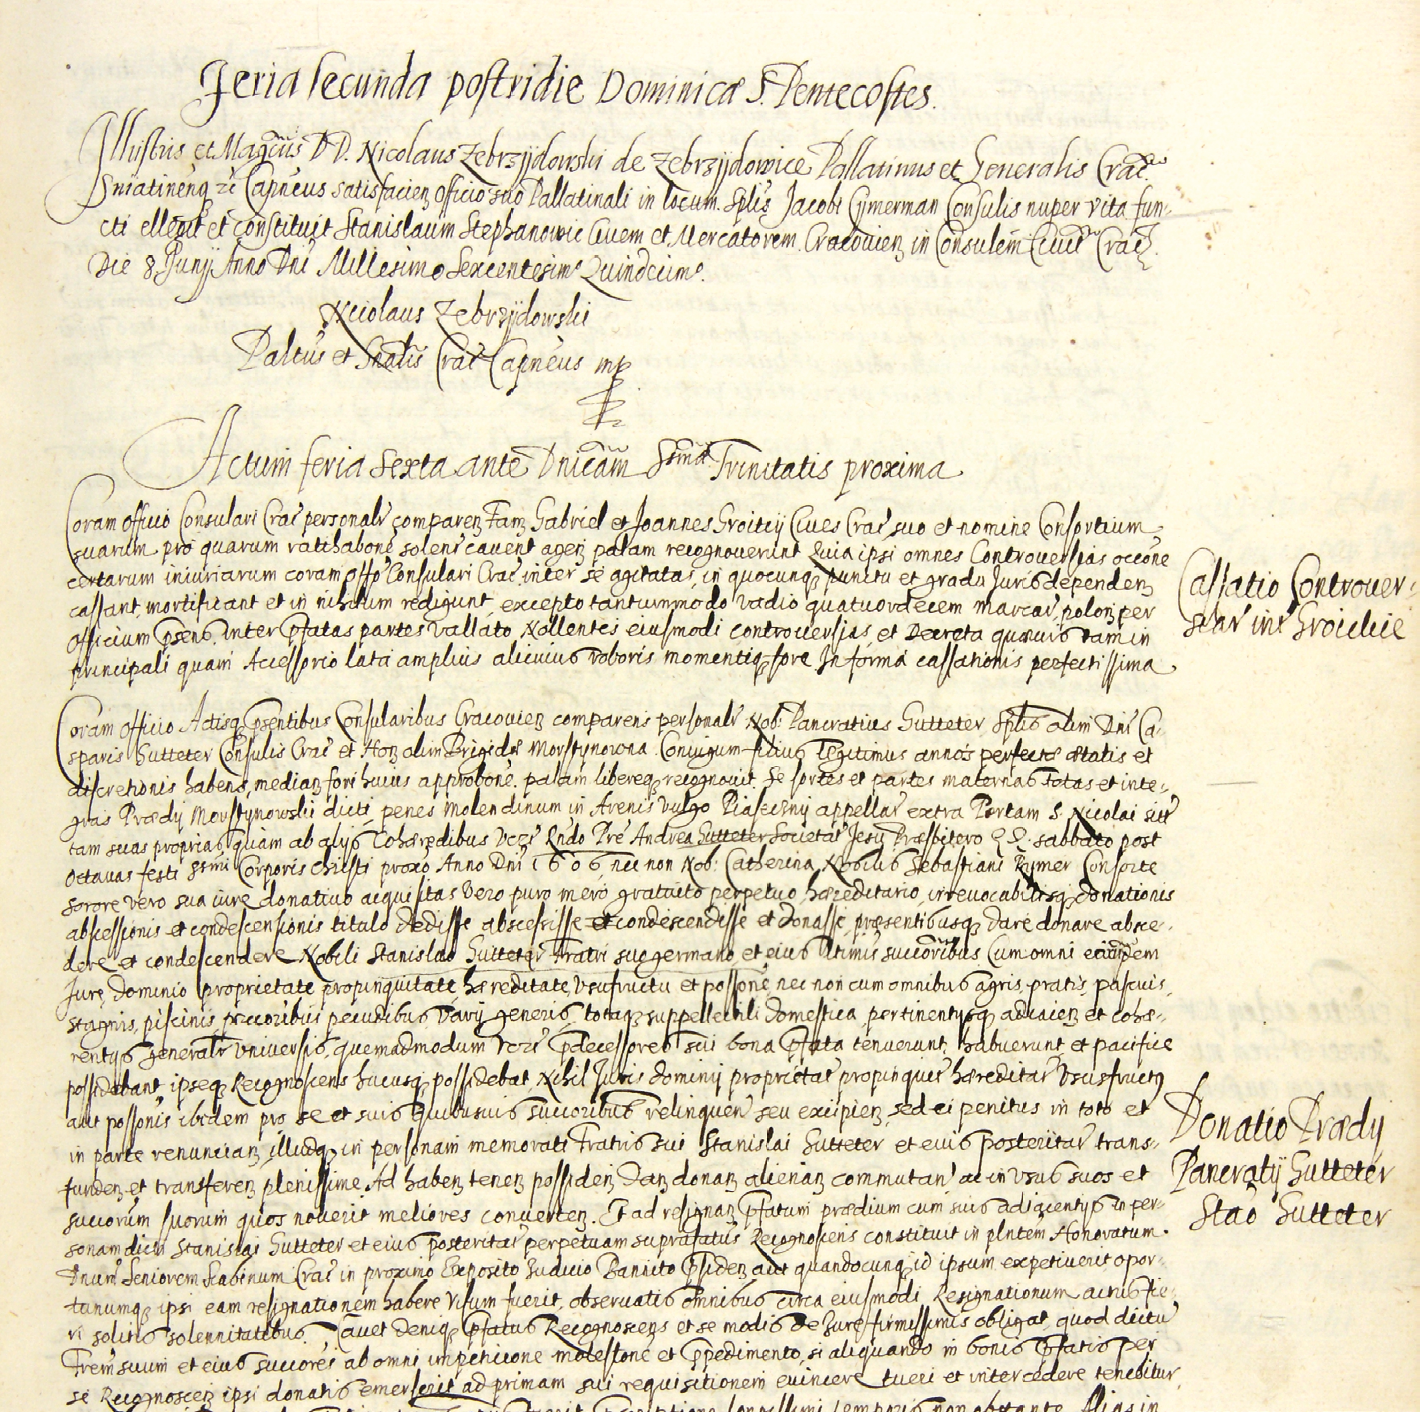 Feria secunda postridie Dominicæ S. Pentecostes.
Illustris et Magcus D D. Nicolaus Zebrzÿdowski de Zebrzÿdowice Pallatinus et Generalis Crac
Sniatinenq zc Capneus satisfacien officio suo Pallatinali in locum Splis Jacobi Cÿmerman Consulis nuper vita fun-
cti ellegit et constituit Stanislaum Stephanowic Civem et Mercatorem Cracovien in Consulem Civit Crac.
Die 8 Junÿ Anno Dni Millesimo Sexcentesimo Quindecimo.
Nicolaus Zebrzÿdowski
Paltus et Gnalis Crac Capneus mp
Actum feria Sexta ante Dnicam Ssmæ Trinitatis proxima
Coram officio Consulari Crac personalr comparen Fam Gabriel et Joannes Groicÿ Cives Crac suo et nomine Consortium
suarum pro quarum ratihabone solenr cavent agen palam recognoverunt Quia ipsi omnes Controversias occone
certarum iniuriarum coram Offo Consulari Crac inter se agitatas, in quocunq punctu et gradu Juris dependen
cassant, mortificant et in nihilum redigunt, excepto tantummodo vadio quatuordecem marcar polon per
Officium psens, inter pfatas partes vallato, Nollentes eiusmodi controversias et Decreta quævis tam in
principali quam Accessorio lata amplius alicuius roboris momentiq fore In forma cassationis perfectissima
Cassatio Controver-
siar int Groickie
Coram Officio Actisq psentibus Consularibus Cracovien comparens personalr Nob: Pancratius Gutteter Splis olim Dni Ca-
sparis Gutteter Consulis Crac et Hon olim Brigidæ Morstÿnowna Coniugum filius legitimus annos perfectæ ætatis et
discretionis habens, median fori huius approbone palam libereq recognovit Se sortes et partes maternas totas et inte-
gras Prædÿ Morstÿnowskii dicti, penes Molendinum in Arenis vulgo Piasecznÿ appellar extra Portam S. Nicolai sitr
tam suas proprias quàm ab alÿs Cohæredibus Rndo Pre Andrea Gutteter Societatr Jesu Præsbitero sabbato post
Octavas festi Ssmi Corporis Christi proxo Anno Dni 1606, nec non Nob: Catherina Nobilis Sebastiani Consorte
sorore vero sua iure donativo acquisitas vero puro mero gratuito perpetuo, hæreditario, irrevocabilisq donationis
abscessionis et condescensionis titulo dedisse abscessisse et condescendisse et donasse, præsentibusq dare donare absce-
dere et condescendere Nobili Stanislao Gutteter Fratri suo germano, et eius ltimis succoribus Cum omni eiusdem
Jure, dominio proprietate propinquitate, hæreditate, Vsufructu et possone, nec non cum omnibus agris, pratis, pascuis,
stagnis, piscinis, pecoribus pecudibus varÿ generis, totaq suppellectili domestica, pertinentÿsq adiacien et cohæ-
rentÿs generalr universis, quemadmodum pdecessores sui bona pfata tenuerunt, habuerunt et pacifice
possidebant, ipseq Recognoscens hucusq possidebat, Nihil Juris dominÿ proprietatr propinquitr hæreditar Vsusfructq
aut possonis ibidem pro se et suis quibusvis succoribus relinquen seu excipien, sed ei penitus in toto et
in parte renuncian, illudq in personam memorati Fratris sui Stanislai Gutteter et eius posteritar trans-
funden et transferen plenissime. Ad haben tenen possiden dan donan alienan commutan ac in Vsus suos et
succorum suorum quos noverit meliores converten. Et ad resignan pfatum prædium cum suis adiacentÿs in per-
sonam dicti Stanislai Gutteter et eius posteritar perpetuam suprafatus Recognoscens constituit in plntem Honoratum
Dnum Seniorem Scabinum Crac in proximo Exposito Judicio Bannito psiden aut quandocunq id ipsum expetiverit opor-
tunumq ipsi eam resignationem habere visum fuerit, observatis omnibus circa eiusmodi Resignationum actus fie-
ri solitis solennitatibus. Cavet deniq pfatus Recognoscens et se modis de Jure firmissimis obligat, quod dictu
Frem suum et eius succores ab omni impeticione molestone et ppedimento, si aliquando in bonis pfatis per
se Recognoscen ipsi donatis emerserit ad primam sui requisitionem evincere tueri et intercedere tenebitur,
Donatio Prædÿ
Pancratÿ Gutteter
Stao Gutteter
longissimi temporis non obstante Alias in